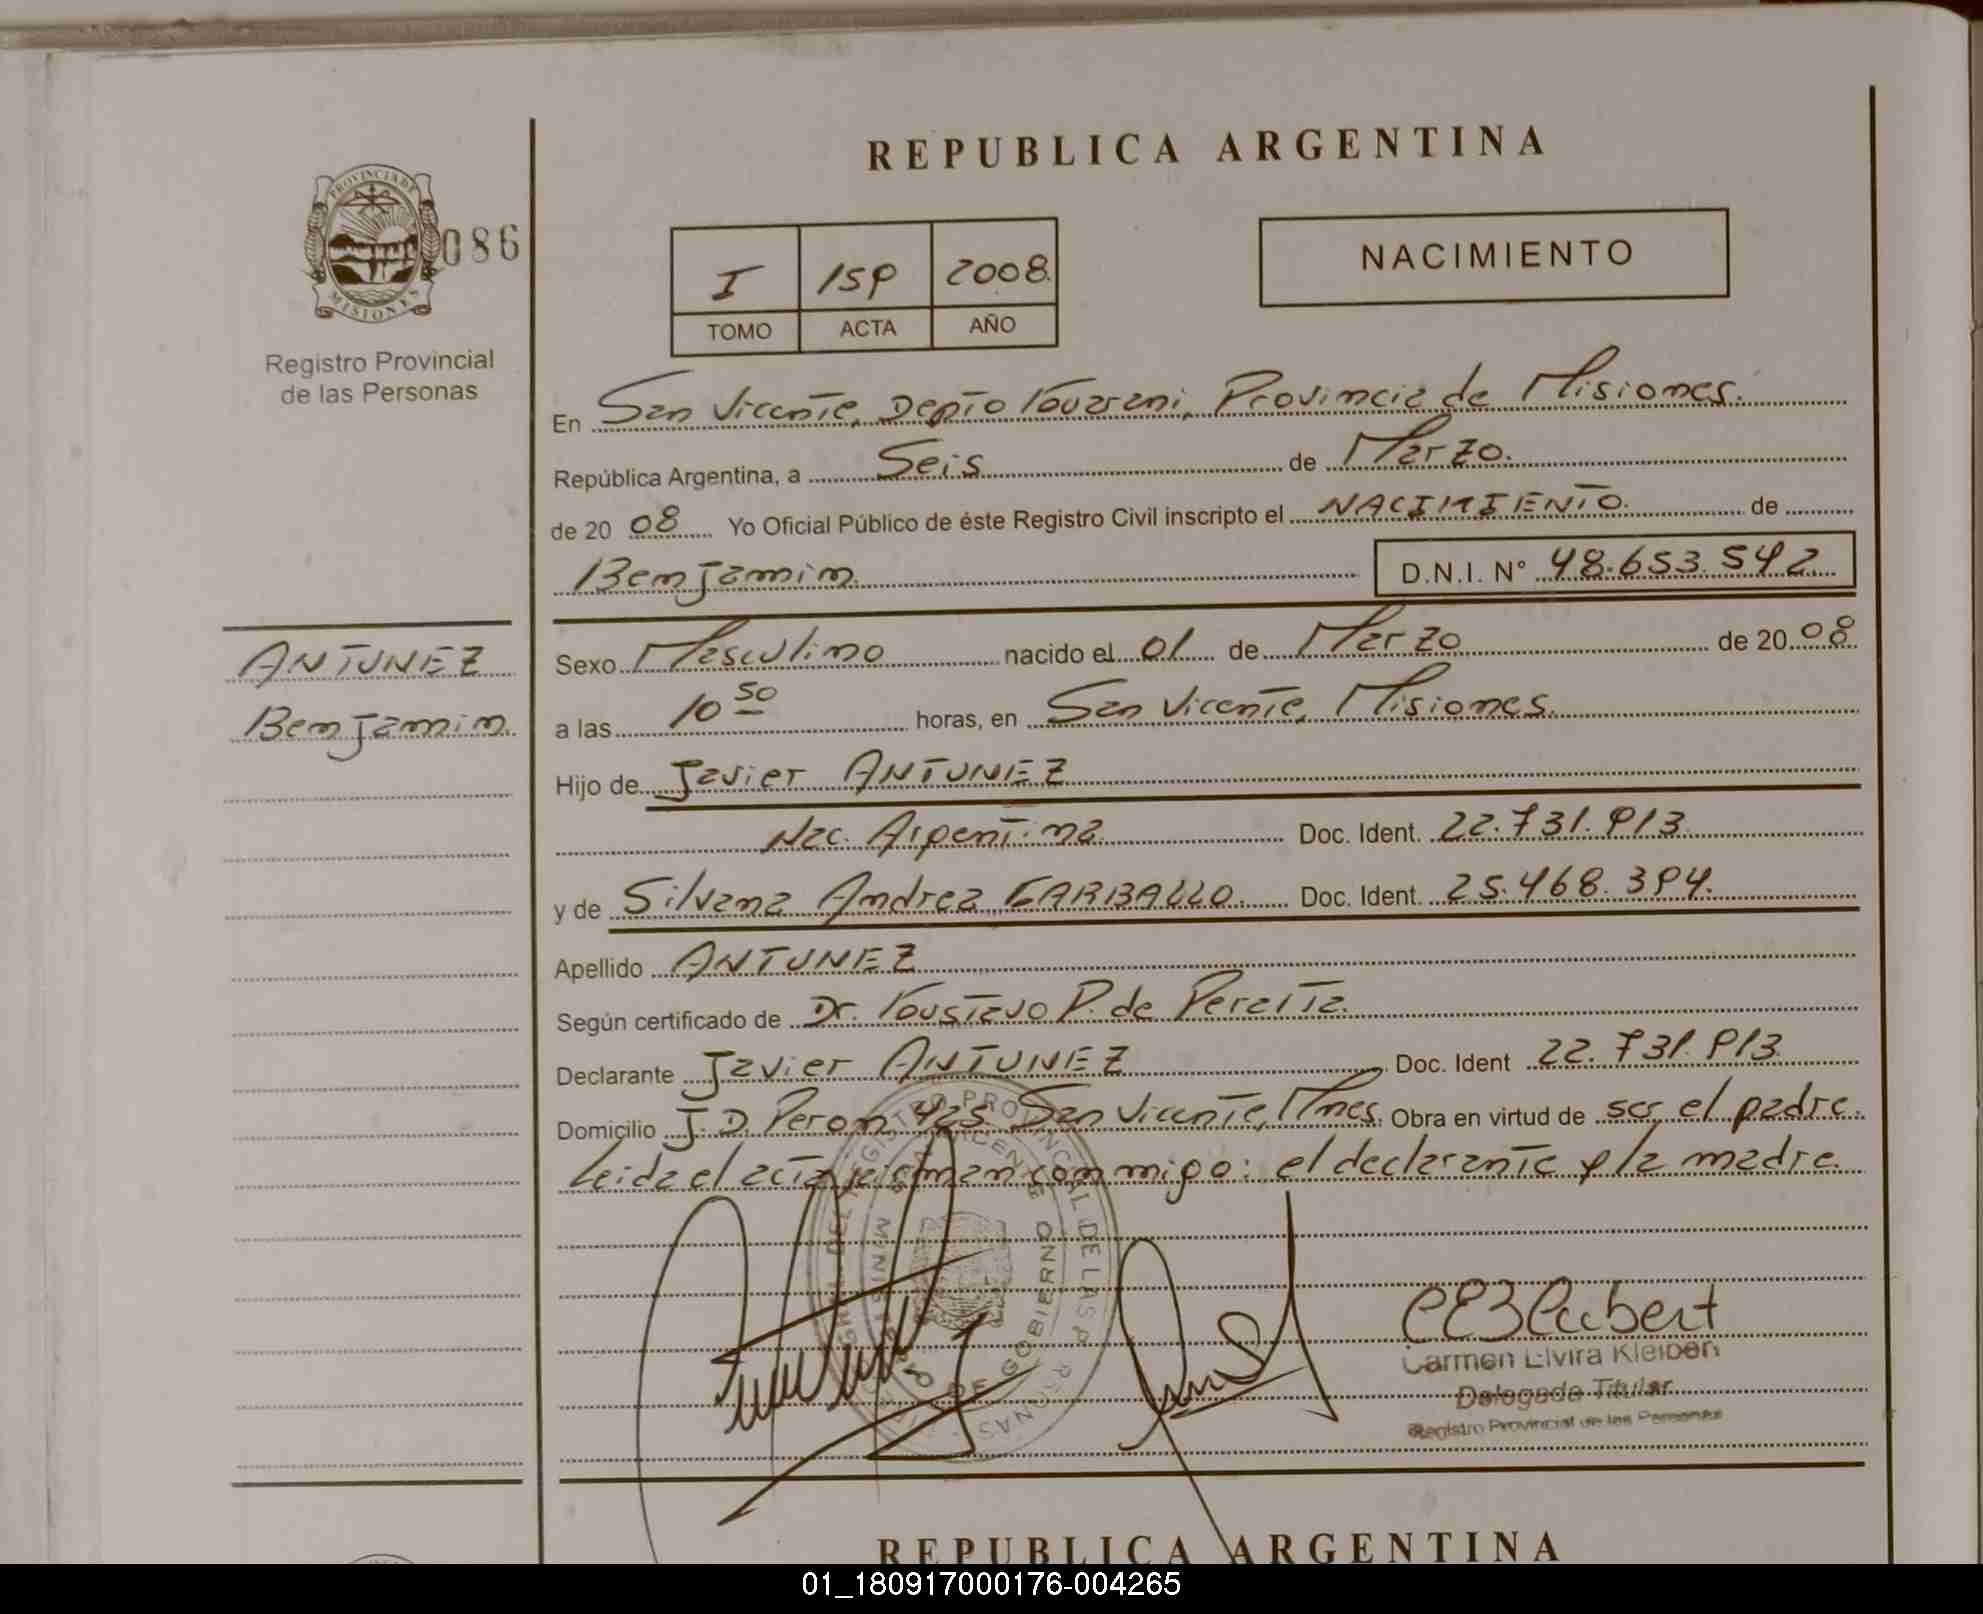 REPUBLICA ARGENTINA
PROVINCIA DE
MISIONES
086
Registro Provincial
de las Personas
I 159 2008.
TOMO ACTA AÑO
NACIMIENTO
En San Vicente, Depto Guarani, Provincia de Misiones.
República Argentina, a Seis de Marzo.
de 20 08 Yo Oficial Público de éste Registro Civil inscripto el NACIMIENTO. de
Benjamin. D.N.I. N° 48.653.542
ANTUNEZ
Benjamin.
Sexo Masculino nacido el 01 de Marzo de 20 08
a las 10 50 horas, en San Vicente, Misiones.
Hijo de Javier ANTUNEZ
Nac. Argentina Doc. Ident. 22.731.913
y de Silvana Andrea CARBALLO. Doc. Ident. 25.468.394.
Apellido ANTUNEZ
Según certificado de Dr. Gustavo P. de Peralta.
Declarante Javier ANTUNEZ Doc. Ident 22.731.913
Domicilio J. D. Peron 425 San Vicente, Mnes. Obra en virtud de ser el padre.
Leida el acta firman conmigo: el declarante y la madre.
Carmen Elvira Kleiben
Delegada Titular
Registro Provincial de las Personas
REPUBLICA ARGENTINA
01_180917000176-004265